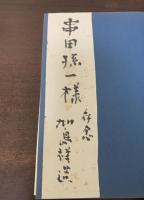 串田孫一様
存念
加島祥造